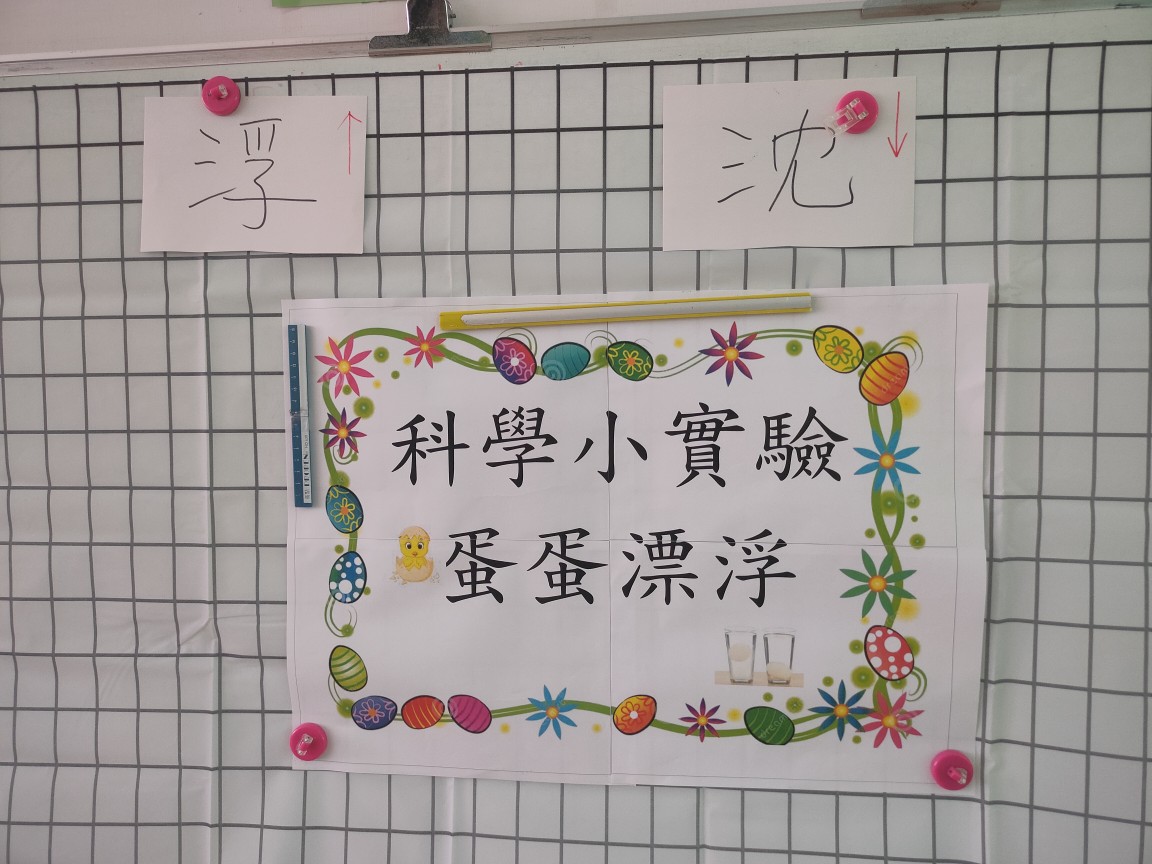 浮
沈
科學小實驗
蛋蛋漂浮